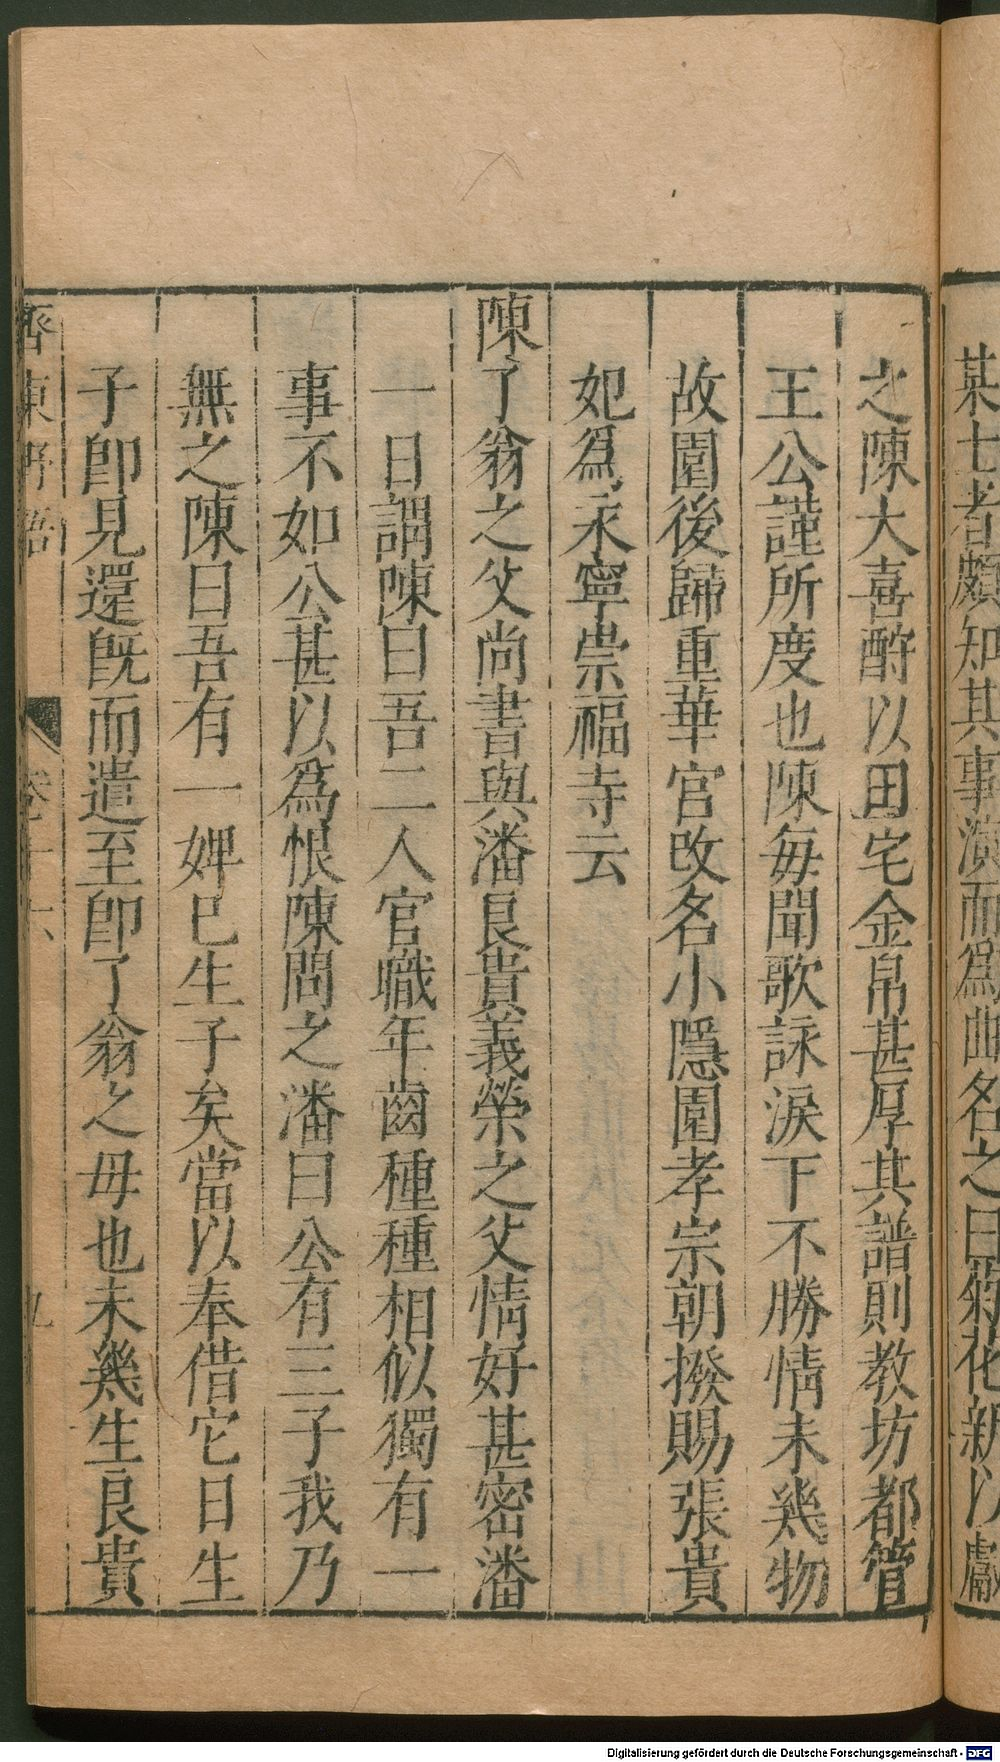 某士者頗知其事演而爲曲名之曰菊花新以獻
之陳大喜酧以田宅金帛甚厚其譜則教坊都管
王公謹所度也陳每聞歌詠淚下不勝情未幾物
故園後歸重華宮改名小隱園孝宗朝撥賜張貴
妃爲永寧崇福寺云
陳了翁之父尚書與潘良貴義榮之父情好甚密潘
一日謂陳曰吾二人官職年齒種種相似獨有一
事不如公甚以爲恨陳問之潘曰公有三子我乃
無之陳曰吾有一婢已生子矣當以奉借它日生
子卽見還旣而遣至卽了翁之母也未幾生良貴
齊東野語 卷十六 九
Digitalisierung gefördert durch die Deutsche Forschungsgemeinschaft - DFG